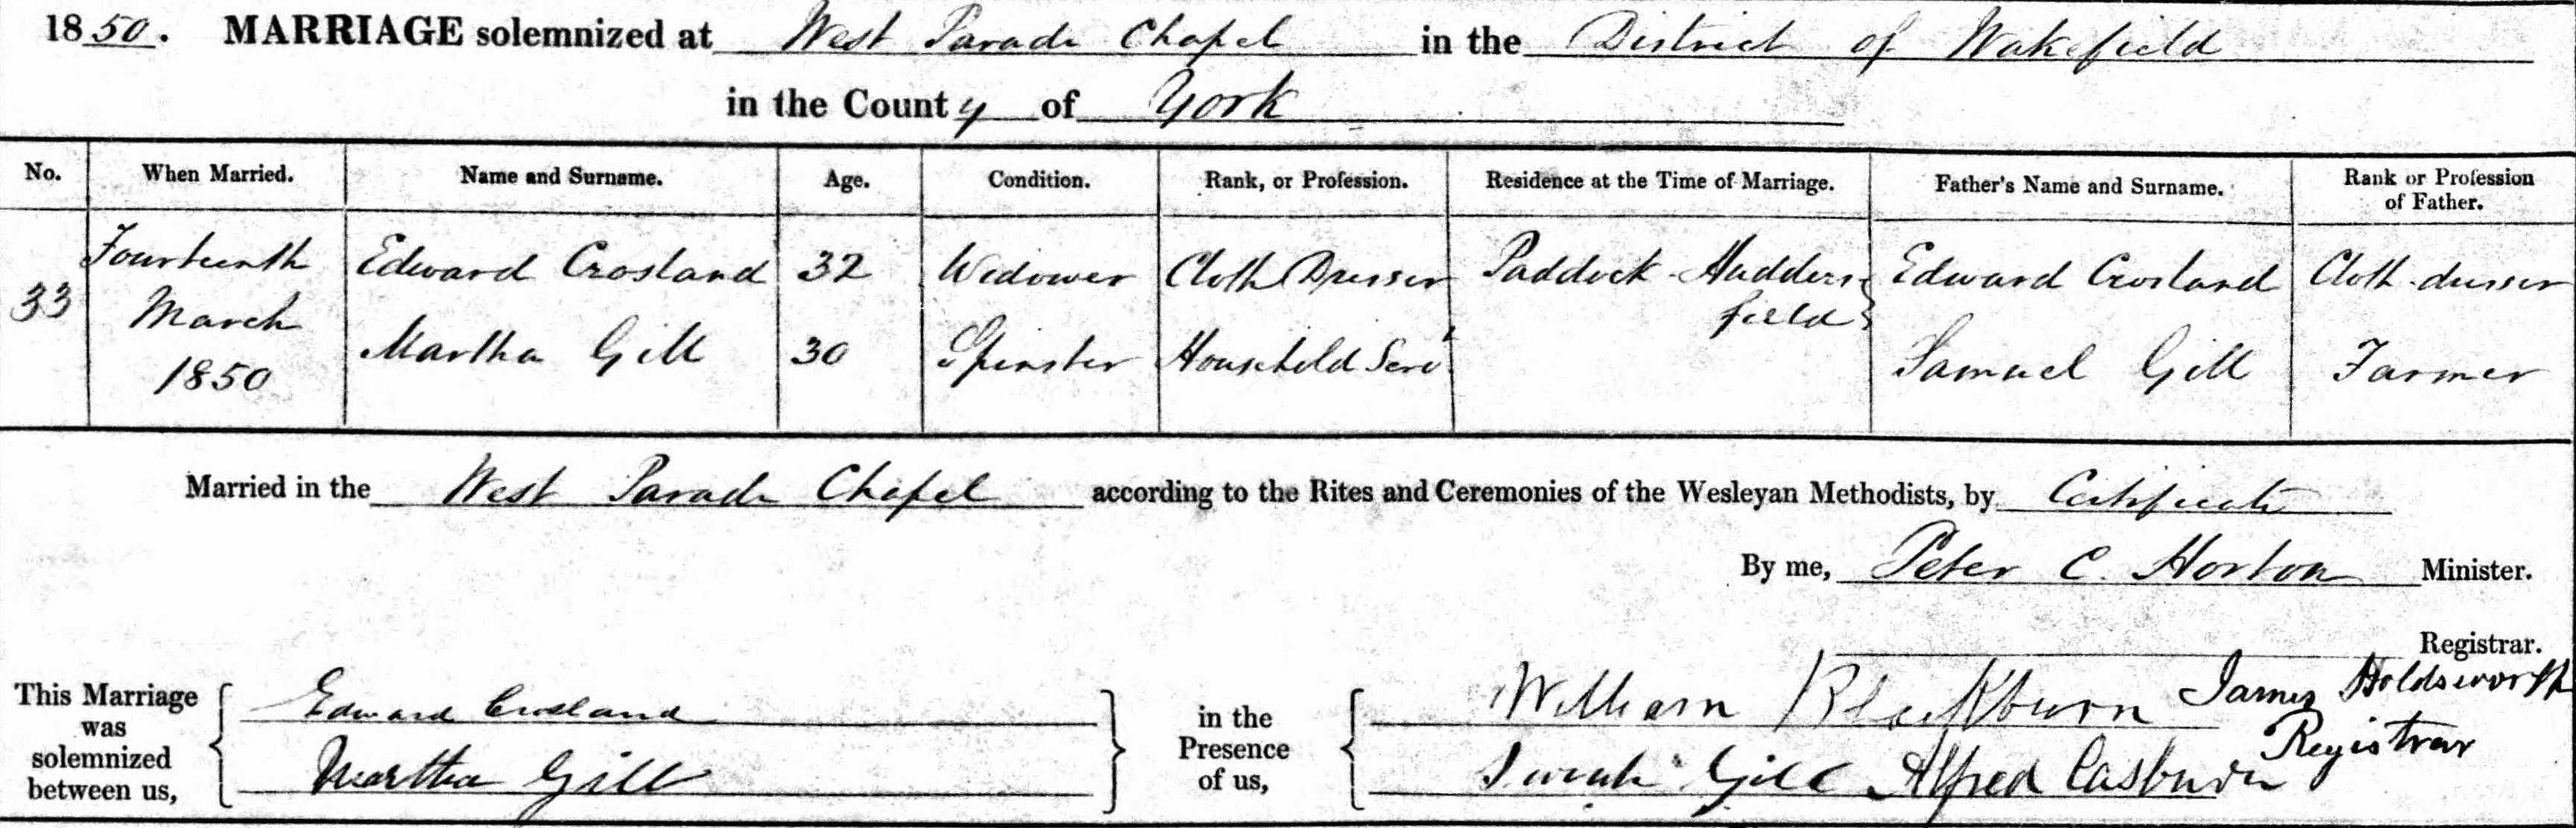 1850. MARRIAGE solemnized at West Parade Chapel in the District of Wakefield
in the County of York
No. When Married. Name and Surname. Age. Condition. Rank, or Profession. Residence at the Time of Marriage. Father's Name and Surname. Rank or Profession of Father.
33 Fourteenth March 1850 Edward Crosland 32 Widower Cloth Dresser Paddock Huddersfield Edward Crosland Cloth dresser
Martha Gill 30 Spinster Household Servt Samuel Gill Farmer
Married in the West Parade Chapel according to the Rites and Ceremonies of the Wesleyan Methodists, by Certificate
By me, Peter C. Horton Minister.
Registrar.
This Marriage was solemnized between us, Edward Crosland in the Presence of us, William Blackburn James Holdsworth Registrar
Martha Gill Sarah Gill Alfred Casburn